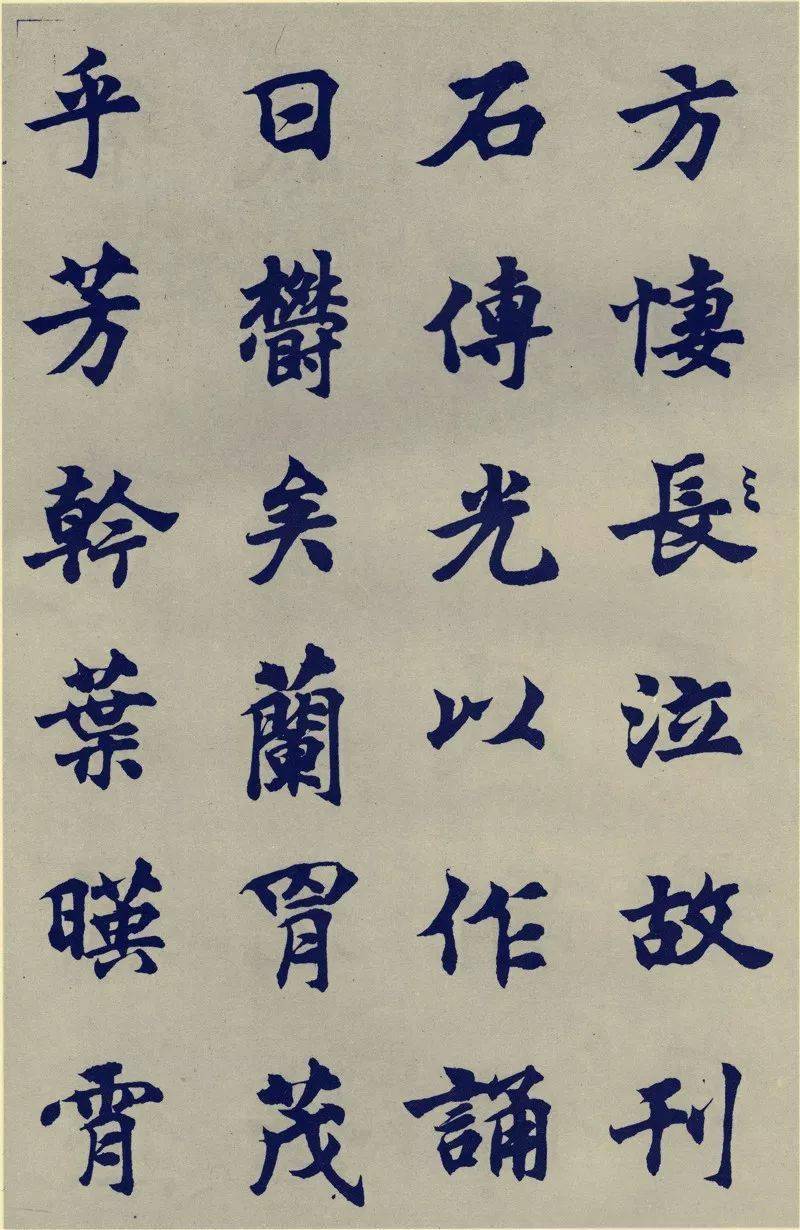 方悽長三泣故刊
石傳光以作誦
曰欝矣蘭胷茂
乎芳幹葉暎霄